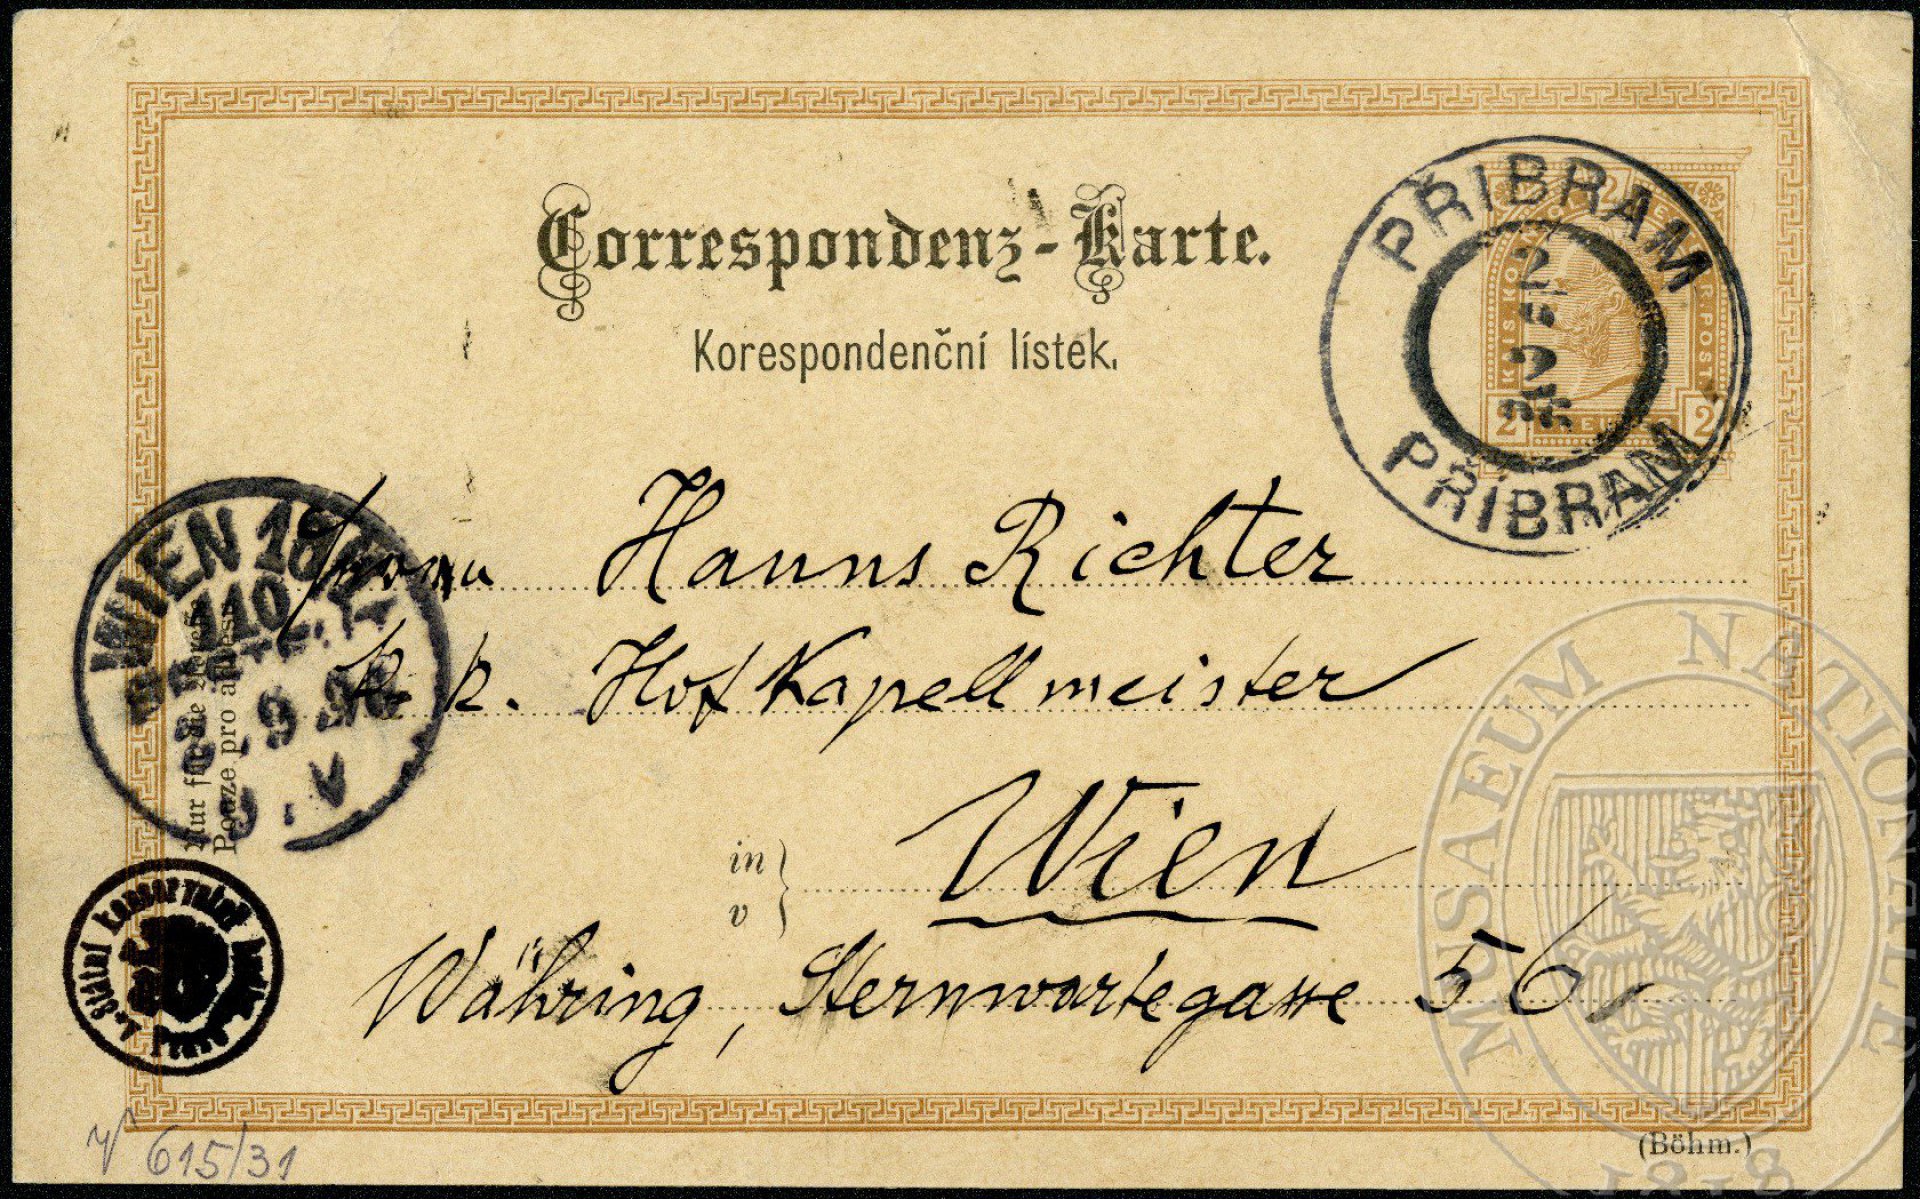 Correspondenz-Karte.
Korespondenční lístek.
PŘIBRAM
PŘÍBRAM
2
2
WIEN 18
110
Hanns Richter
k. k. Hofkapellmeister
in
v
Wien
Währing, Sternwartegasse 56
Nur für die Adresse
Pouze pro adresu
Státní konservatoř
Praha
615/31
(Böhm.)
MUSAEUM NATIONALE
1818